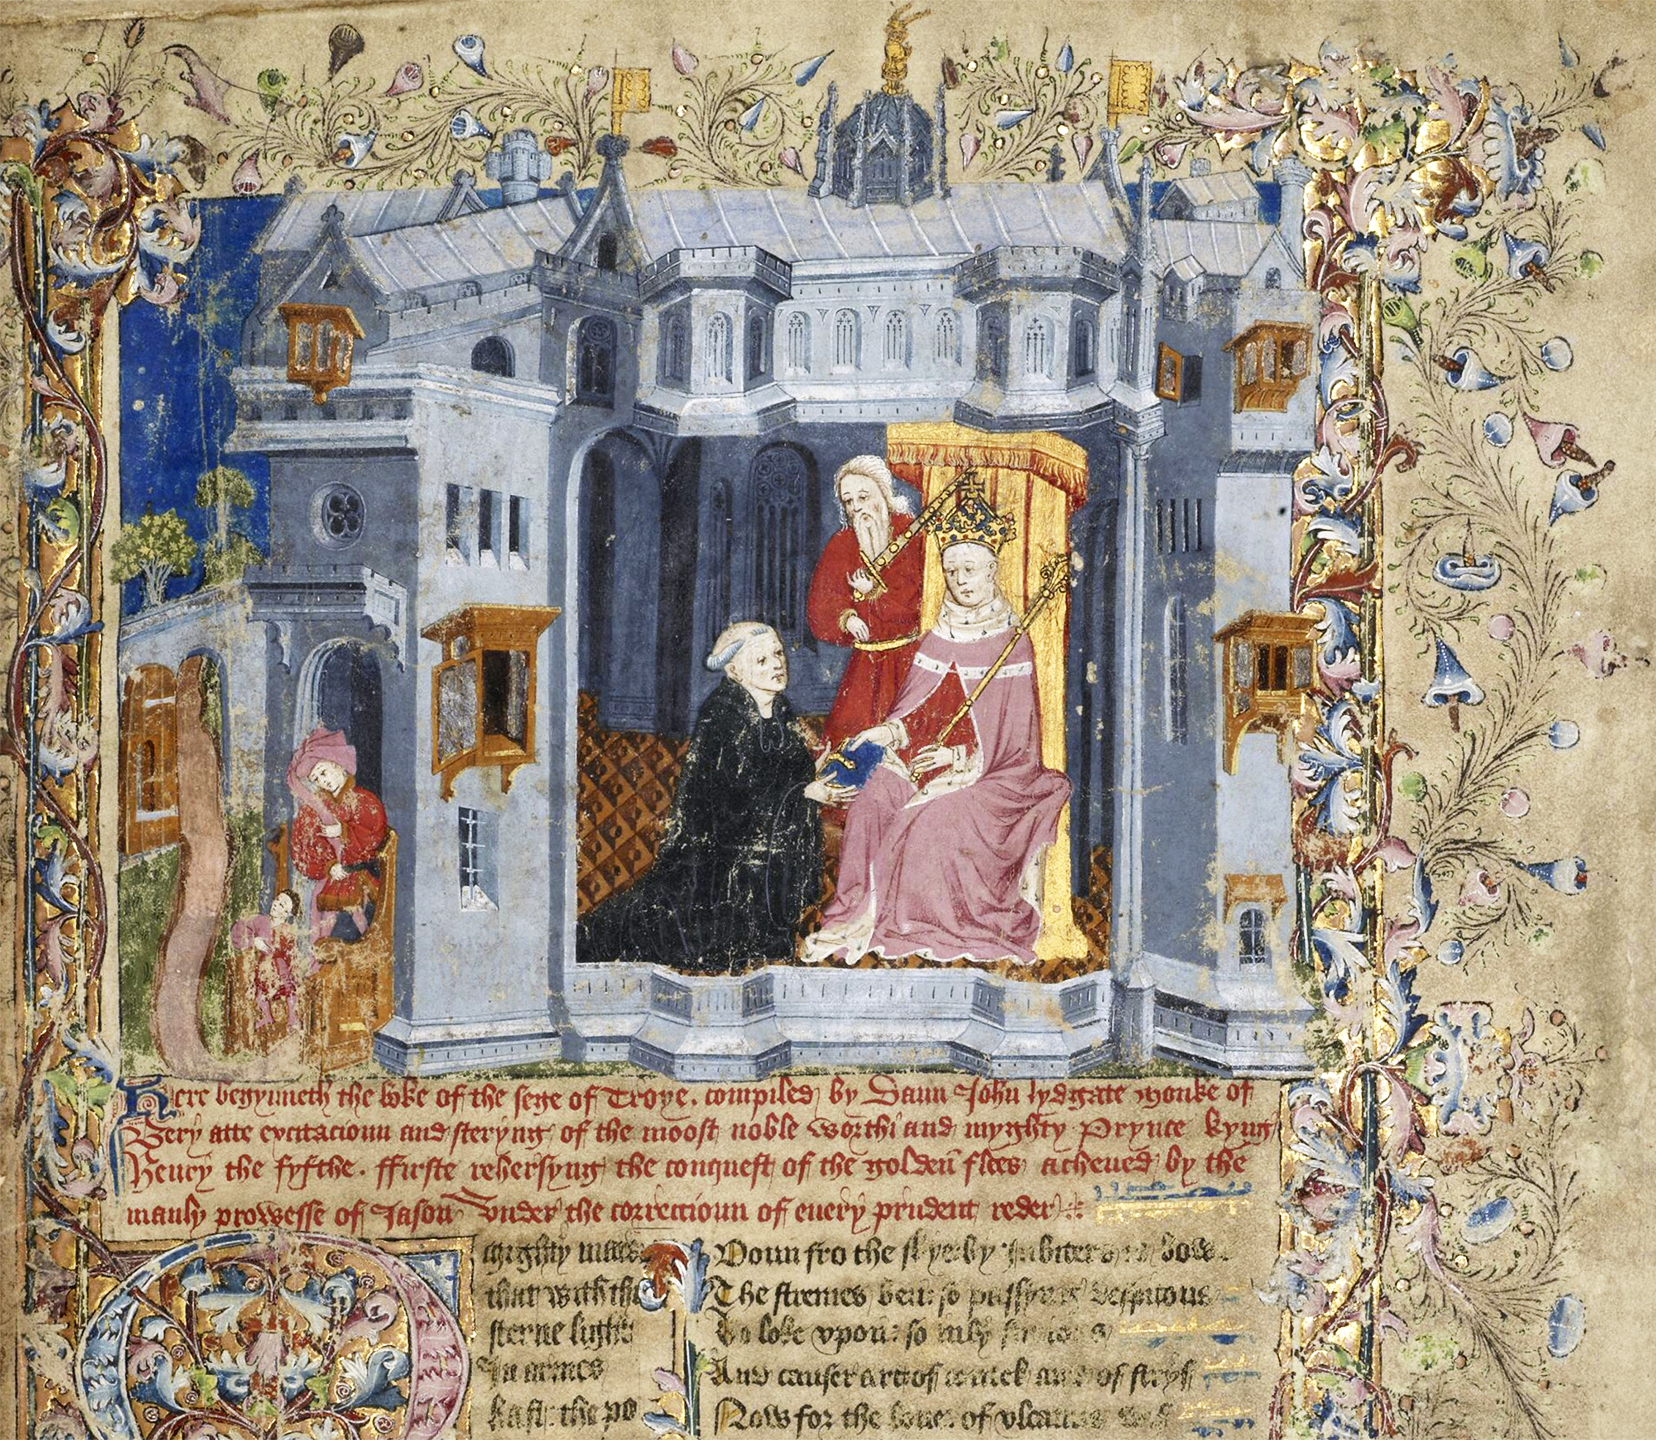 Here begynneth the boke of the sege of Troye. compiled by Daun John lydgate monke of
Bery atte excitacioun and steryng of the moost noble worthi and myghty Prynce kyng
Henry the fyfthe. ffirste rehersyng the conquest of the golden flees acheued by the
manly prowesse of Jason Vnder the correccioun of euery prudent reder
O myghty mars
that with thi
sterne light
In armes
hast the po
Doun fro the skye by
The stremes ben so
To loke vpon so
And causer art of and of stryf
Now for the loue of vlcanus